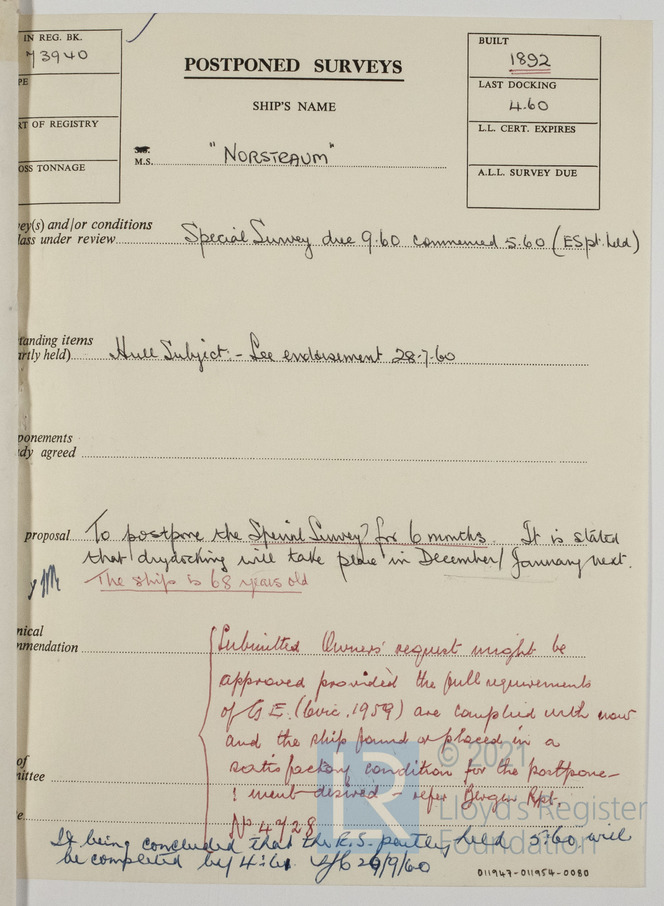 IN REG. BK.
73940
PE
RT OF REGISTRY
OSS TONNAGE
POSTPONED SURVEYS
SHIP'S NAME
M.S. "NORSTRAUM"
BUILT
1892
LAST DOCKING
4.60
L.L. CERT. EXPIRES
A.L.L. SURVEY DUE
vey(s) and/or conditions
lass under review Special Survey due 9.60 commenced 5.60 (ES pt. held)
tanding items
artly held) Hull Subject. - See endorsement 28.7.60
ponements
dy agreed
proposal To postpone the Special Survey for 6 months. It is stated
that drydocking will take place in December/January next.
The ship is 68 years old
nical
mmendation Submitted Owners' request might be
approved provided the full requirements
of E. (Circ. 1959) are complied with now
and the ship found or placed in a
of satisfactory condition for the postpone-
ittee
ment desired - refer Bergen Rpt.
e No 4728
It being concluded that the E.S. partly held 5.60 will
be completed by 4.61 29/9/60
© 2021
Lloyd's Register
Foundation
011947-011954-0080